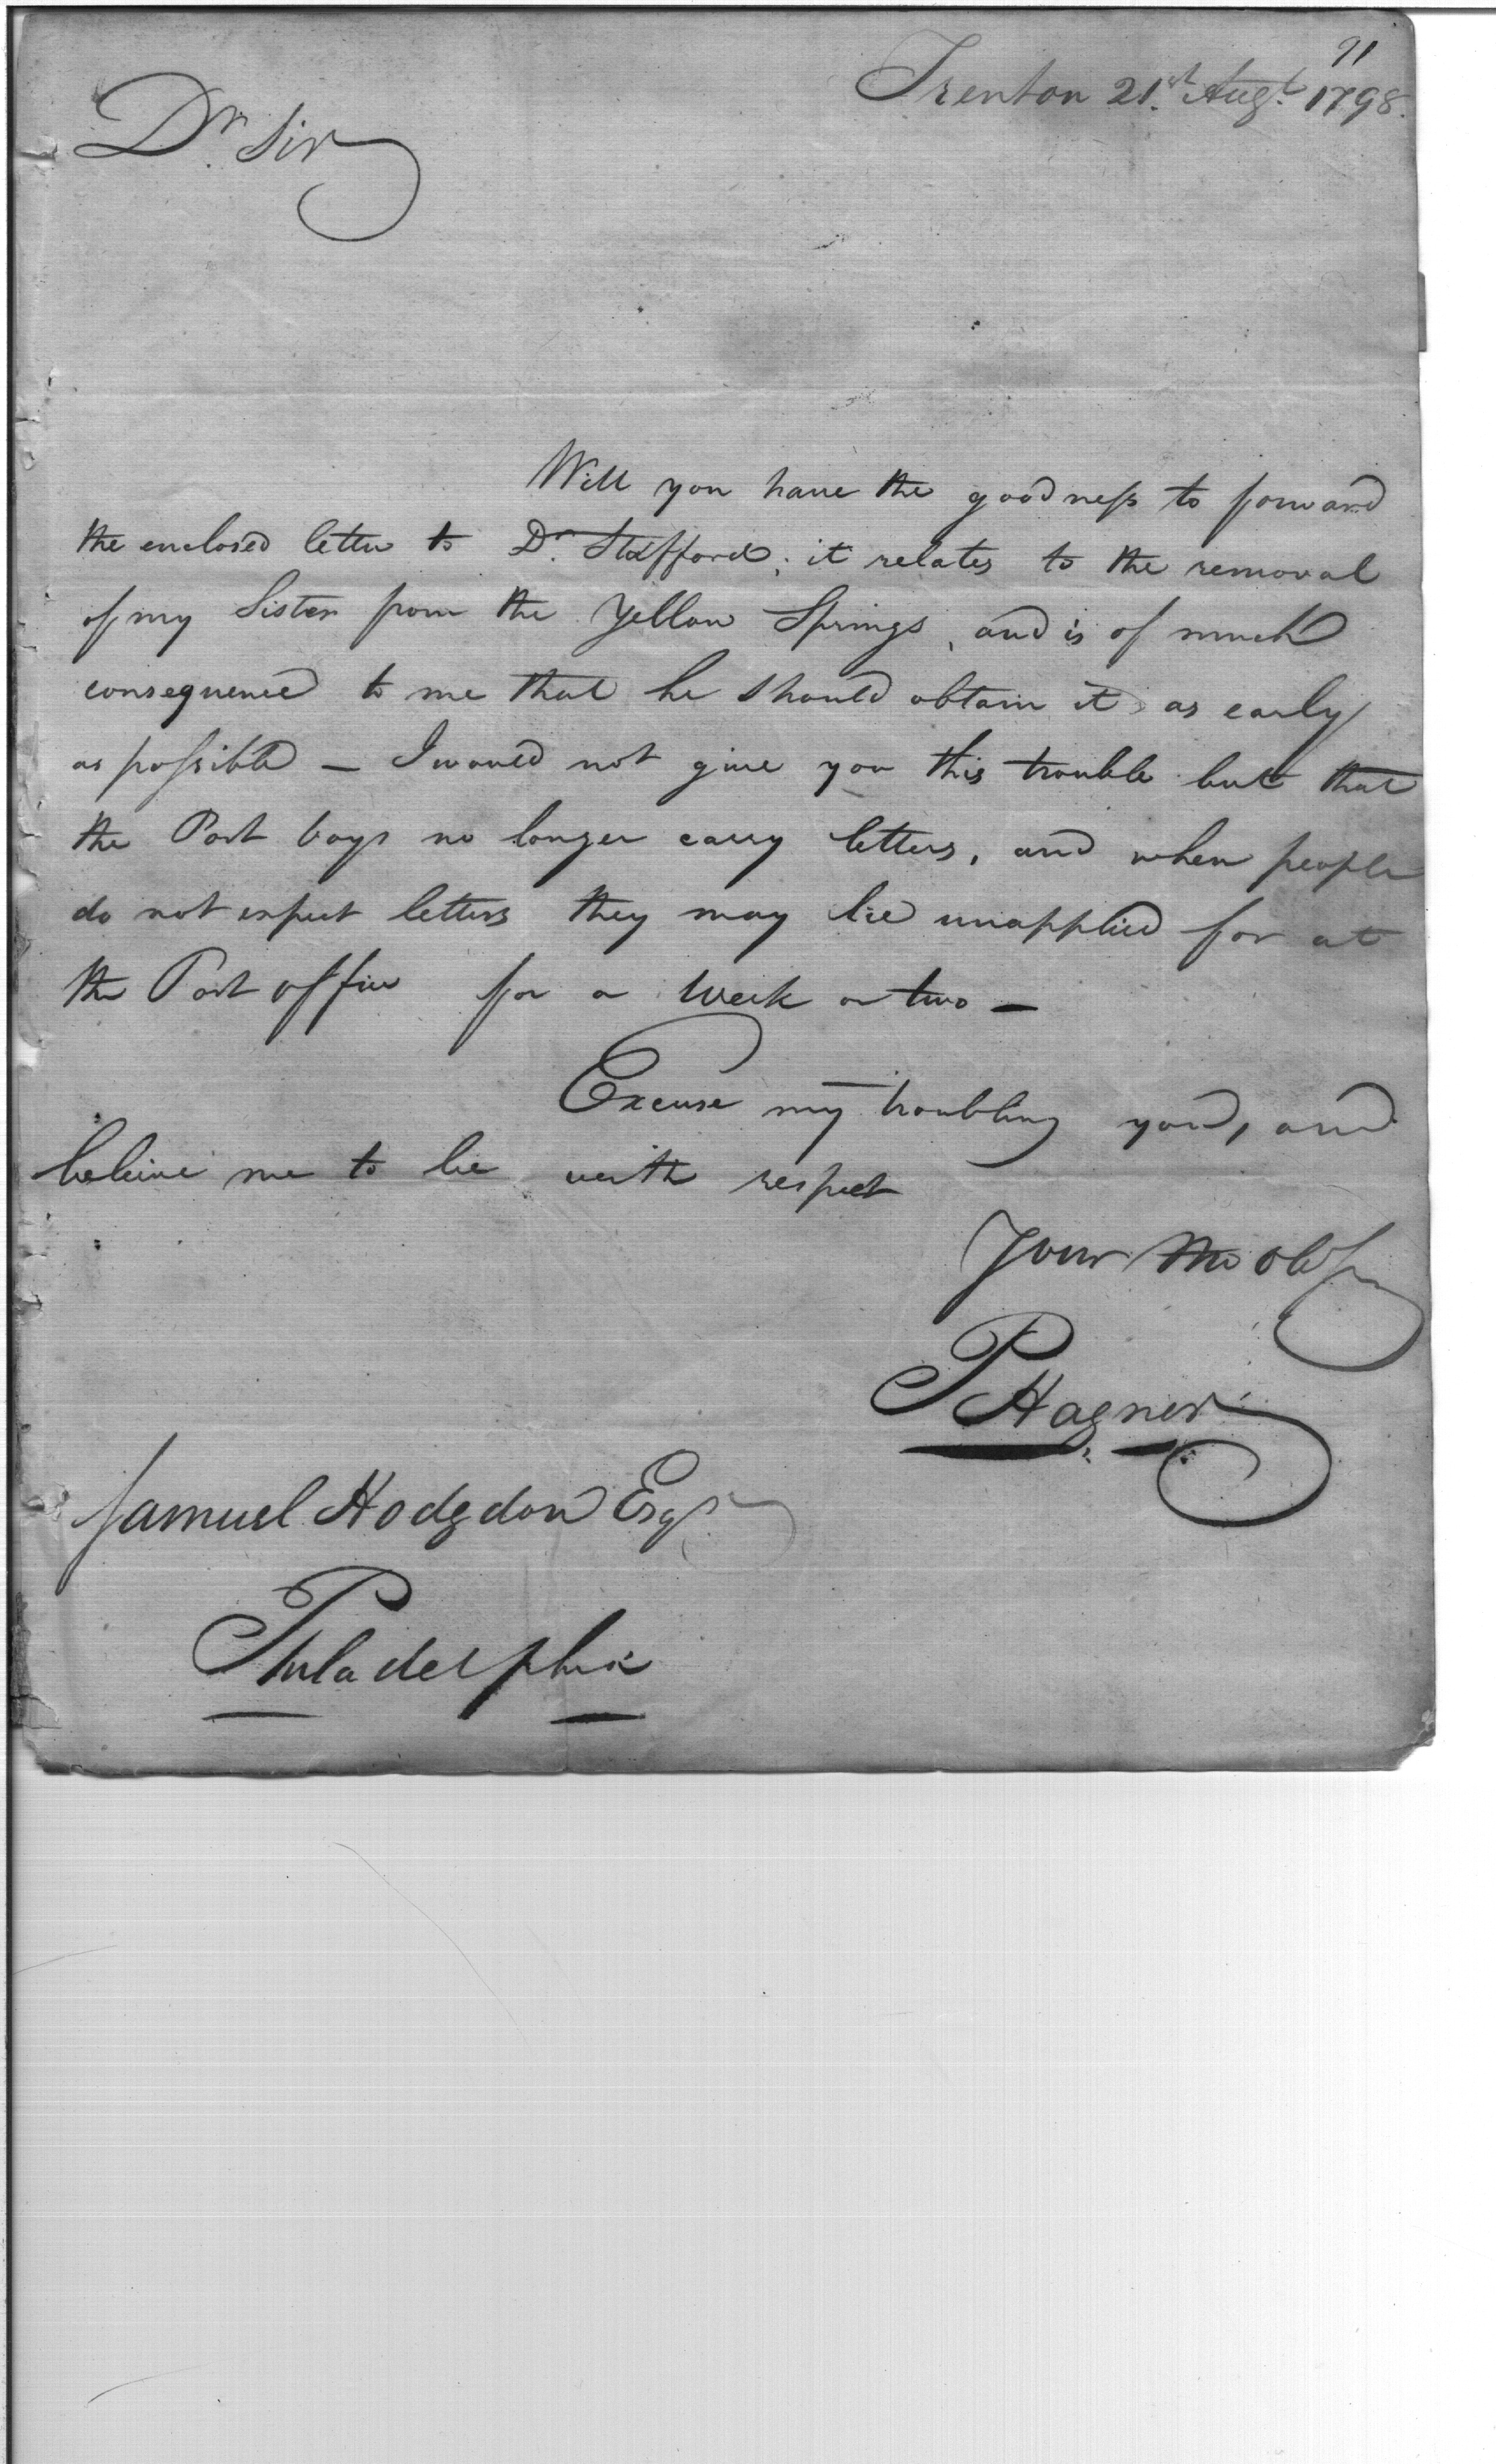 91
Trenton 21st Augt. 1798.
Dr. Sir
Will you have the goodness to forward
the enclosed letter to Dr. Stafford; it relates to the removal
of my Sister from the Yellow Springs, and is of much
consequence to me that he should obtain it as early
as possible — I would not give you this trouble but that
the Post boys no longer carry letters, and when people
do not expect letters they may lie unapplied for at
the Post office for a week or two —
Excuse my troubling you, and
beleive me to be with respect
Your Mo Obt
P Hagner
Samuel Hodgdon Esqr.
Philadelphia